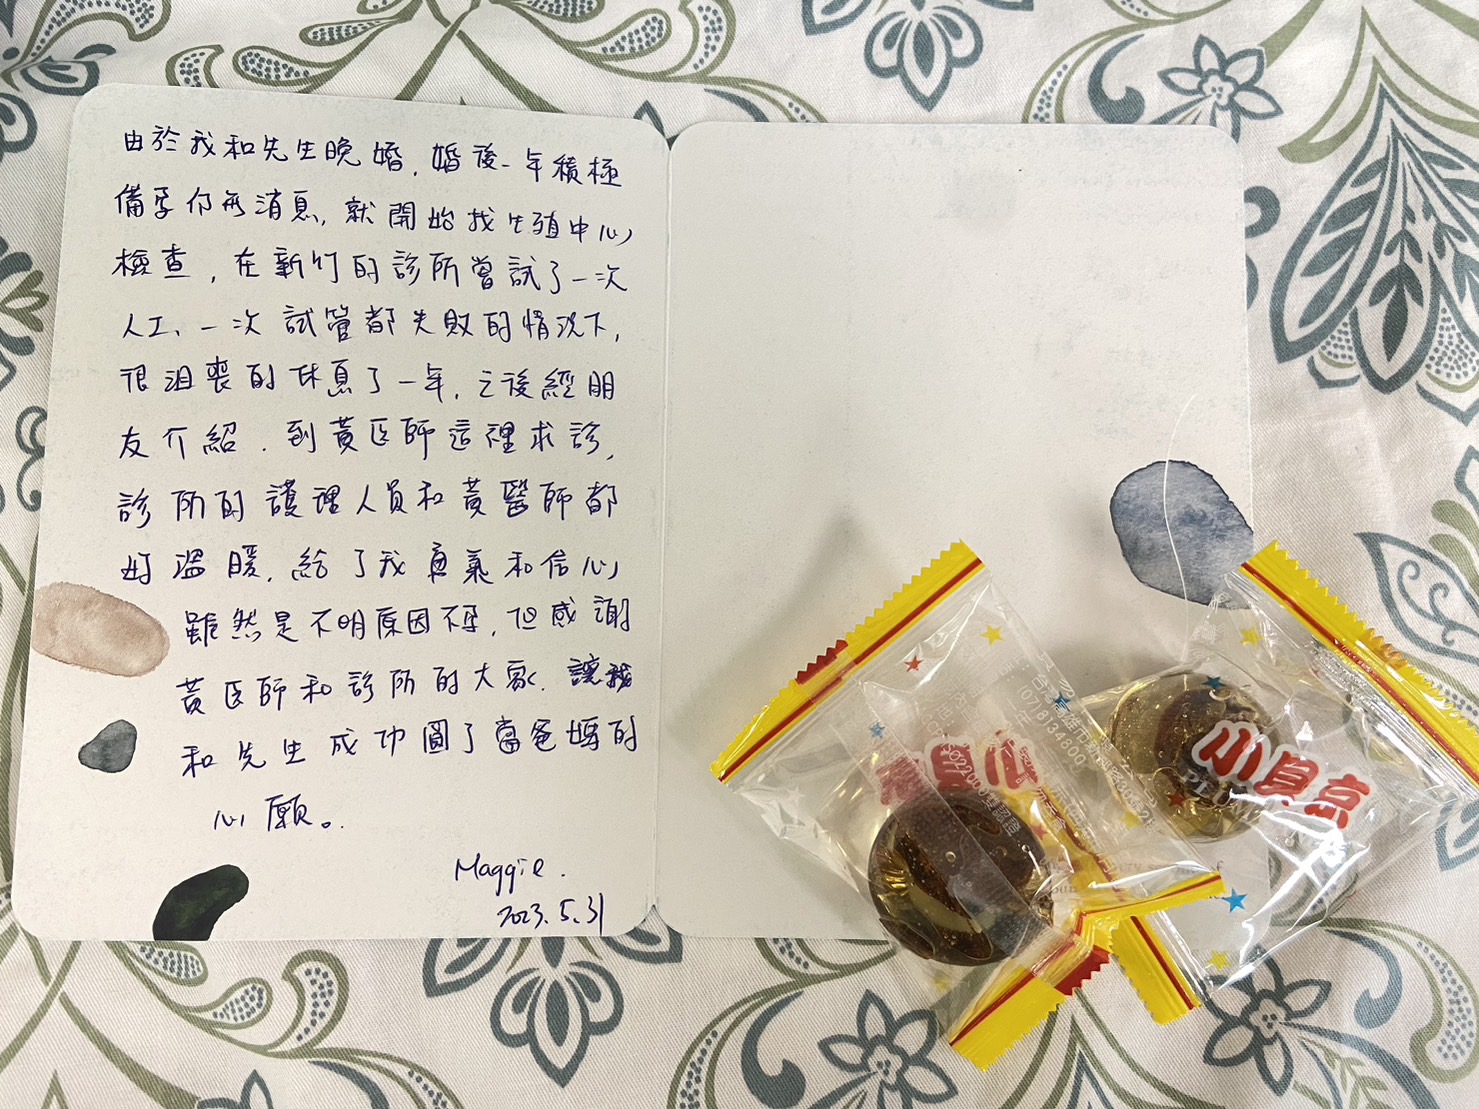 由於我和先生晚婚,婚後一年積極
備孕仍無消息,就開始找生殖中心
檢查,在新竹的診所嘗試了一次
人工、一次試管都失敗的情況下,
很沮喪的休息了一年,之後經朋
友介紹.到黃医師這裡求診,
診所的護理人員和黃醫師都
好溫暖,給了我勇氣和信心
雖然是不明原因不孕,但感謝
黃医師和診所的大家.讓我
和先生成功圓了當爸媽的
心願。
Maggie.
2023.5.31
小貝
(07)8134600
小貝京
PLUM